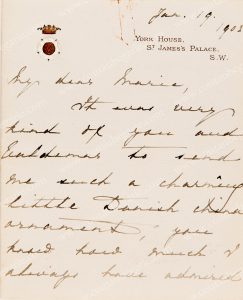 Jan. 19. 1903
YORK HOUSE,
ST JAMES'S PALACE,
S.W.
My dear Marie,
It was very
kind of you and
Waldemar to send
me such a charming
little Danish china
ornament, you
know how much I
always have admired